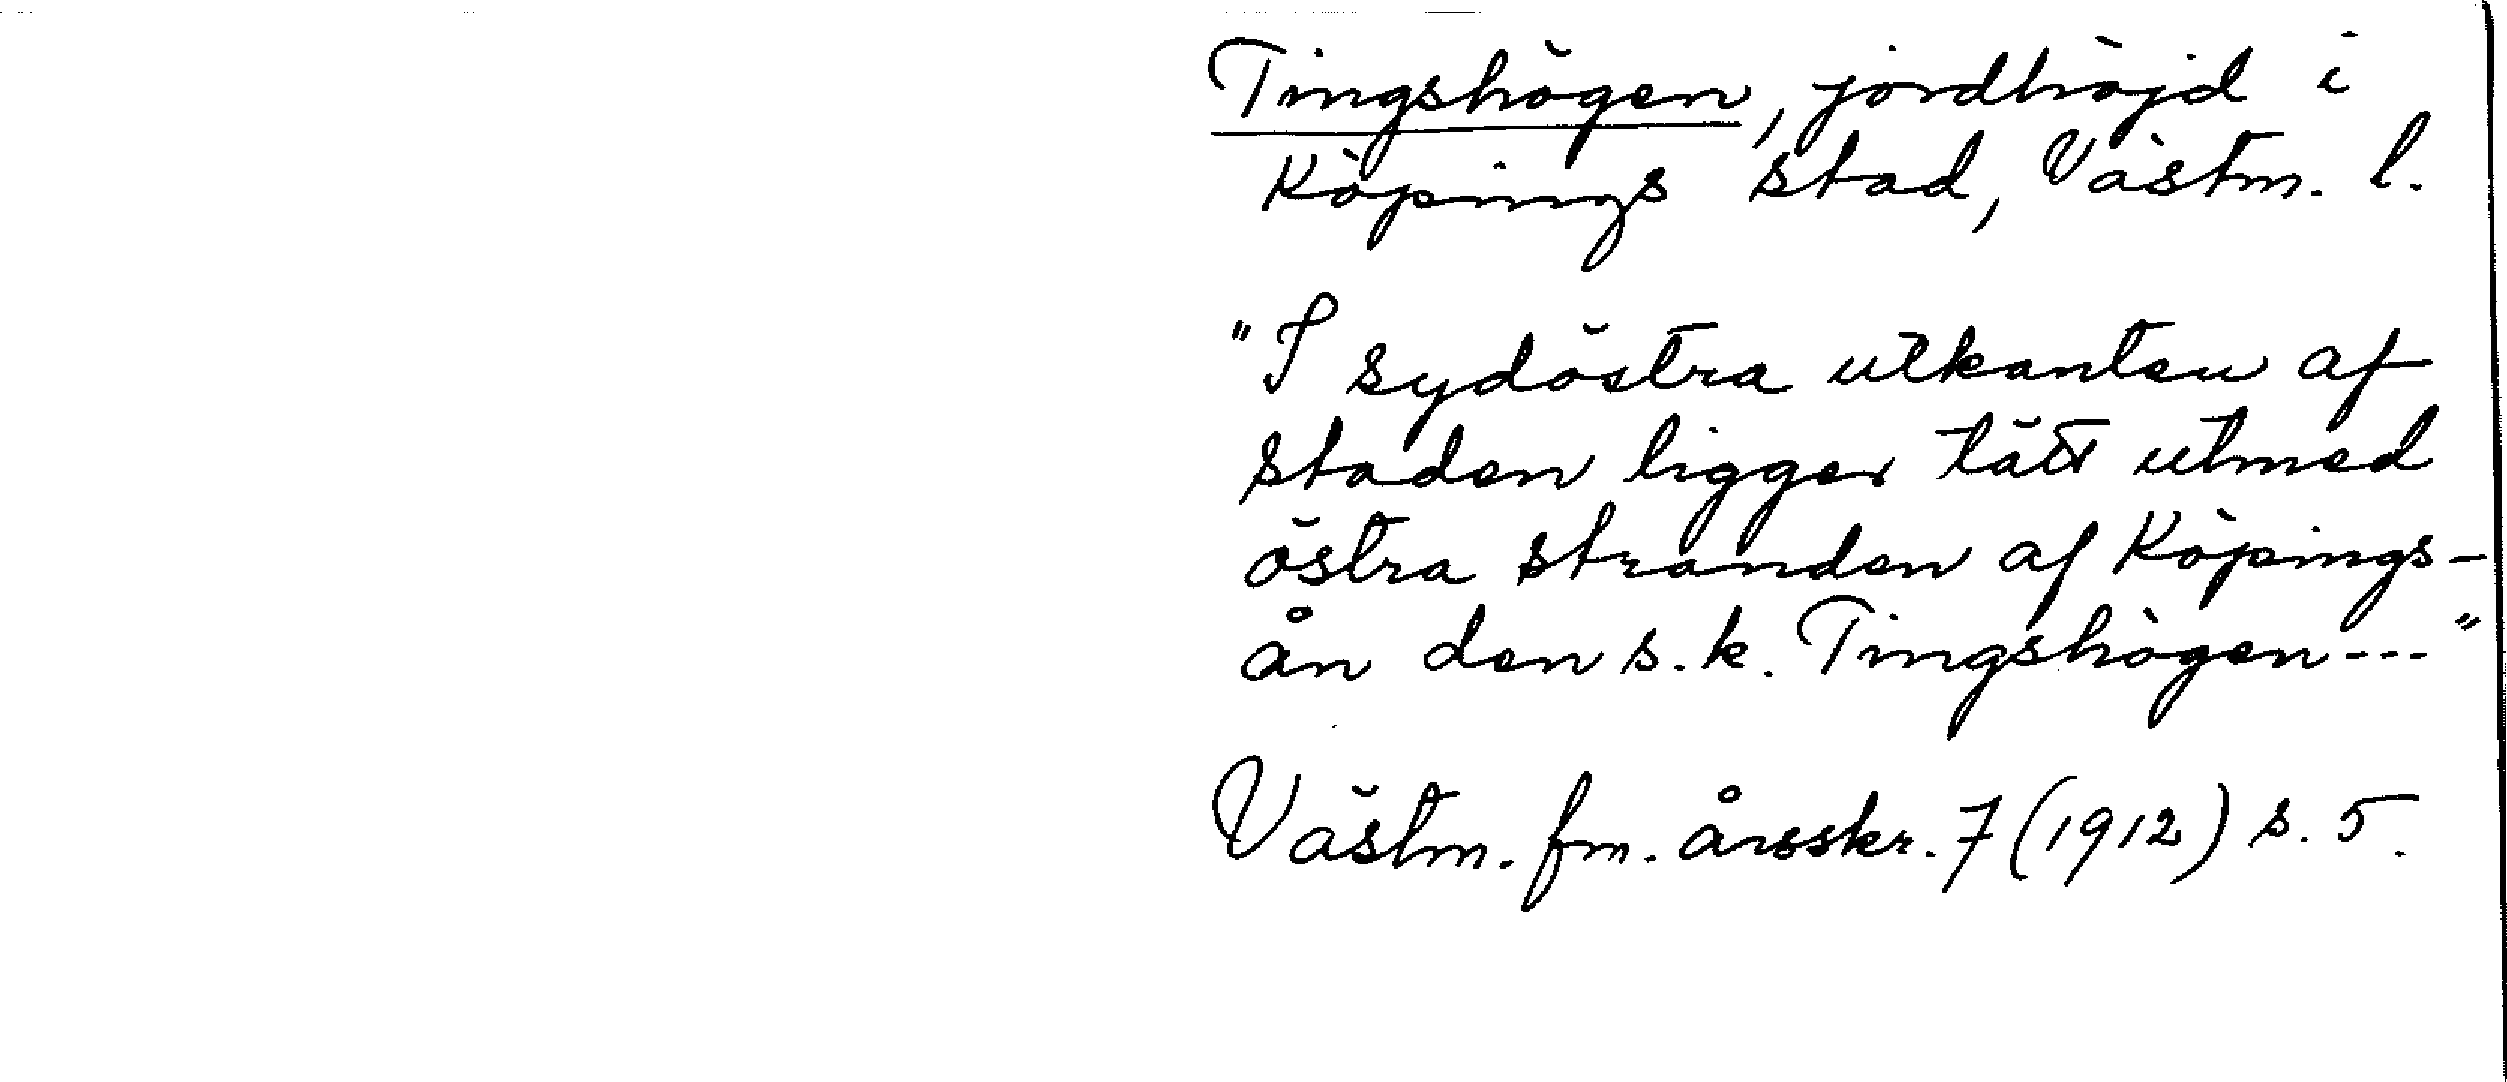 Tingshögen, jordhöjd i
Köpings stad, Västm. l.
"I sydöstra utkanten af
staden ligger tätt utmed
östra stranden af Köpings-
ån den s.k. Tingshögen---"
Västm. fm. årsskr. 7 (1912) s. 5.